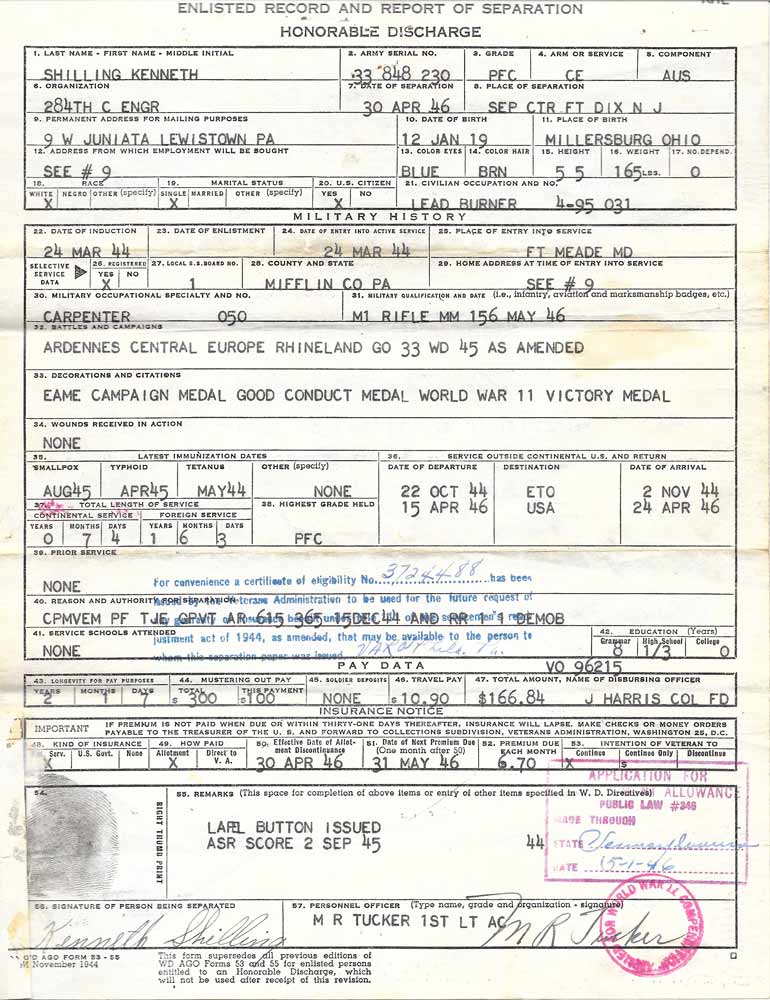 ENLISTED RECORD AND REPORT OF SEPARATION
HONORABLE DISCHARGE
1. LAST NAME - FIRST NAME - MIDDLE INITIAL 2. ARMY SERIAL NO. 3. GRADE 4. ARM OR SERVICE 5. COMPONENT
SHILLING KENNETH 33 848 230 PFC CE AUS
6. ORGANIZATION 7. DATE OF SEPARATION 8. PLACE OF SEPARATION
284TH C ENGR 30 APR 46 SEP CTR FT DIX N J
9. PERMANENT ADDRESS FOR MAILING PURPOSES 10. DATE OF BIRTH 11. PLACE OF BIRTH
9 W JUNIATA LEWISTOWN PA 12 JAN 19 MILLERSBURG OHIO
12. ADDRESS FROM WHICH EMPLOYMENT WILL BE SOUGHT 13. COLOR EYES 14. COLOR HAIR 15. HEIGHT 16. WEIGHT 17. NO. DEPEND.
SEE # 9 BLUE BRN 5 5 165 LBS. 0
18. RACE 19. MARITAL STATUS 20. U.S. CITIZEN 21. CIVILIAN OCCUPATION AND NO.
WHITE NEGRO OTHER (specify) SINGLE MARRIED OTHER (specify) YES NO
X X X LEAD BURNER 4-95 031
MILITARY HISTORY
22. DATE OF INDUCTION 23. DATE OF ENLISTMENT 24. DATE OF ENTRY INTO ACTIVE SERVICE 25. PLACE OF ENTRY INTO SERVICE
24 MAR 44 24 MAR 44 FT MEADE MD
SELECTIVE SERVICE DATA 26. REGISTERED YES NO 27. LOCAL S.S. BOARD NO. 28. COUNTY AND STATE 29. HOME ADDRESS AT TIME OF ENTRY INTO SERVICE
X 1 MIFFLIN CO PA SEE # 9
30. MILITARY OCCUPATIONAL SPECIALTY AND NO. 31. MILITARY QUALIFICATION AND DATE (i.e., infantry, aviation and marksmanship badges, etc.)
CARPENTER 050 M1 RIFLE MM 156 MAY 46
32. BATTLES AND CAMPAIGNS
ARDENNES CENTRAL EUROPE RHINELAND GO 33 WD 45 AS AMENDED
33. DECORATIONS AND CITATIONS
EAME CAMPAIGN MEDAL GOOD CONDUCT MEDAL WORLD WAR 11 VICTORY MEDAL
34. WOUNDS RECEIVED IN ACTION
NONE
35. LATEST IMMUNIZATION DATES 36. SERVICE OUTSIDE CONTINENTAL U.S. AND RETURN
SMALLPOX TYPHOID TETANUS OTHER (specify) DATE OF DEPARTURE DESTINATION DATE OF ARRIVAL
AUG45 APR45 MAY44 NONE 22 OCT 44 ETO 2 NOV 44
15 APR 46 USA 24 APR 46
37. TOTAL LENGTH OF SERVICE 38. HIGHEST GRADE HELD
CONTINENTAL SERVICE FOREIGN SERVICE
YEARS MONTHS DAYS YEARS MONTHS DAYS
0 7 4 1 6 3 PFC
39. PRIOR SERVICE
NONE
For convenience a certificate of eligibility No. 3724488 has been
issued by the Veterans Administration to be used for the future request of
40. REASON AND AUTHORITY FOR SEPARATION
CPMVEM PF TJE GPVT AR 615 365 15DEC44 AND RR 1 1 DEMOB
justment act of 1944, as amended, that may be available to the person to
whom this separation paper was issued.
41. SERVICE SCHOOLS ATTENDED 42. EDUCATION (Years)
Grammar High School College
NONE 8 1/3 0
PAY DATA VO 96215
43. LONGEVITY FOR PAY PURPOSES 44. MUSTERING OUT PAY 45. SOLDIER DEPOSITS 46. TRAVEL PAY 47. TOTAL AMOUNT, NAME OF DISBURSING OFFICER
YEARS MONTHS DAYS TOTAL THIS PAYMENT
2 1 7 $ 300 $100 NONE $ 10.90 $166.84 J HARRIS COL FD
INSURANCE NOTICE
IMPORTANT IF PREMIUM IS NOT PAID WHEN DUE OR WITHIN THIRTY-ONE DAYS THEREAFTER, INSURANCE WILL LAPSE. MAKE CHECKS OR MONEY ORDERS
PAYABLE TO THE TREASURER OF THE U. S. AND FORWARD TO COLLECTIONS SUBDIVISION, VETERANS ADMINISTRATION, WASHINGTON 25, D.C.
48. KIND OF INSURANCE 49. HOW PAID 50. Effective Date of Allotment Discontinuance 51. Date of Next Premium Due (One month after 50) 52. PREMIUM DUE EACH MONTH 53. INTENTION OF VETERAN TO
Serv. U.S. Govt. None Allotment Direct to V. A. Continue Continue Only Discontinue
X X 30 APR 46 31 MAY 46 $ 6.70 X
APPLICATION FOR
ALLOWANCE
PUBLIC LAW #346
MADE THROUGH
STATE Pennsylvania
DATE 15-1-46
54. RIGHT THUMB PRINT
55. REMARKS (This space for completion of above items or entry of other items specified in W. D. Directives)
LAPEL BUTTON ISSUED
ASR SCORE 2 SEP 45 44
56. SIGNATURE OF PERSON BEING SEPARATED 57. PERSONNEL OFFICER (Type name, grade and organization - signature)
M R TUCKER 1ST LT AC
Kenneth Shilling M R Tucker
WORLD WAR II COMPENSATION
AGO FORM 53 - 55
November 1944
This form supersedes all previous editions of
WD AGO Forms 53 and 55 for enlisted persons
entitled to an Honorable Discharge, which
will not be used after receipt of this revision.